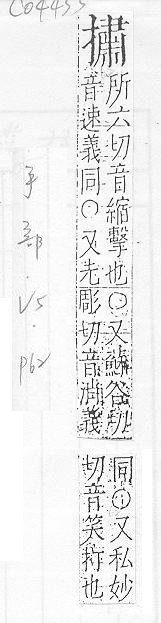 C04455
手部.V5.P62
摵
所六切音縮擊也○又蘇谷切
音速義同○又先彫切音瀟義
同①又私妙
切音笑捋也